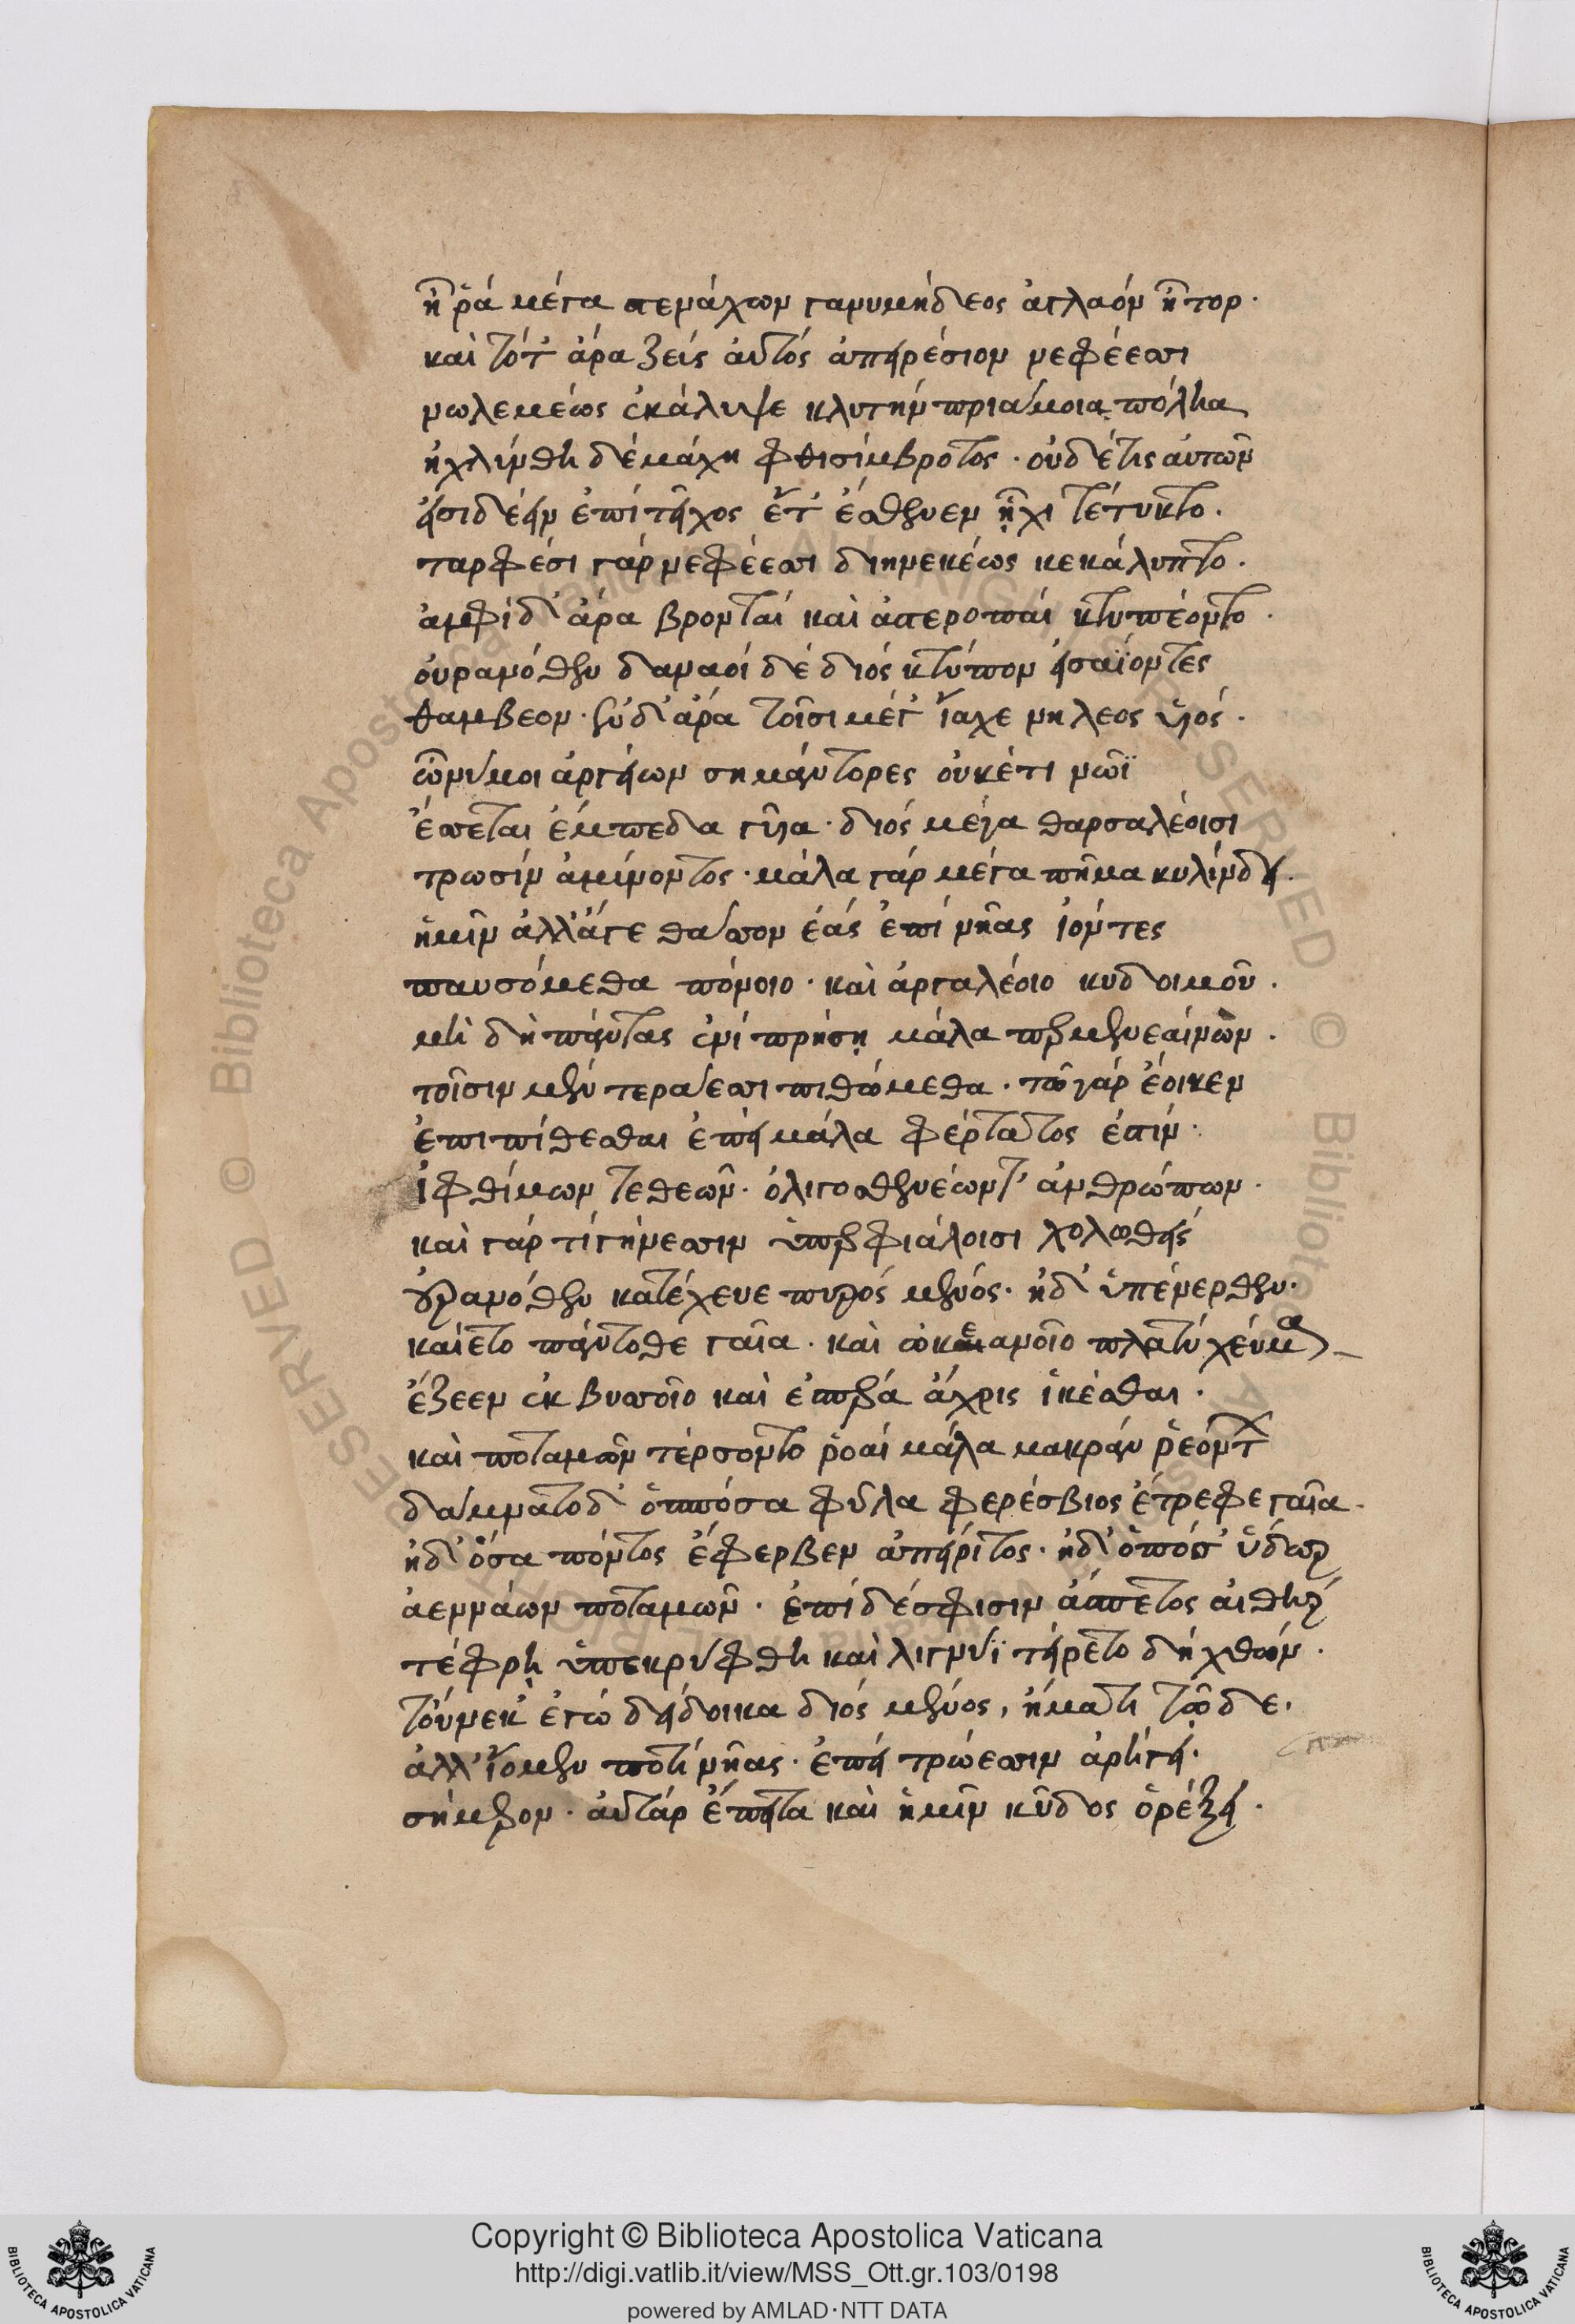 ἦ ῥά μέγα στενάχων γανυμήδεος ἀγλαόν ἦτορ.
καὶ τότ' ἄρα ζεύς ἀυτός ἀπειρέσιον νεφέεσσι
νωλεμέως ἐκάλυψε κλυτήν πριάμοια πόληα
ἠχλύνθη δέ μάχη φθισίμβροτος. οὐδ έτις ἀυτῶν
εἰσιδέειν ἐπί τεῖχος ἔτ' έσθενεν ἧχι τέτυκτο.
ταρφέσι γάρ νεφέεσσι διηνεκέως κεκάλυπτο.
ἀμφί δ' ἄρα βρονταί καὶ ἀστεροπαί κτυπέοντο.
ὀυρανόθεν δαναοί δέ διός κτύπον εἰσαΐοντες
θαμβεον. ἐν δ' ἄρα τοῖσι μέγ' ἴαχε νηλεος υἱός.
ὦ νύ μοι ἀργείων σημάντορες ὀυκέτι νῶϊ
ἔσσεται ἔμπεδα γυῖα. διός μέγα θαρσαλέοισι
τρωσίν ἀμύνοντος. μάλα γάρ μέγα πῆμα κυλίνδει.
ἡμῖν ἀλλ' ἄγε θάσσον ἑάς ἐπί νῆας ἰόντες
παυσόμεθα πόνοιο. καὶ ἀργαλέοιο κυδοιμοῦ.
μὴ δὴ πάντας ἐνί πρήσῃ μάλα περ μενεαίνων.
τοῖσιν μέν τεράεσσι πιθώμεθα. τῶ γάρ ἔοικεν
ἐπιπίθεσθαι ἐπεί μάλα φέρτατος ἐστίν.
ἰφθίμων τε θεῶν. ὀλιγοσθενέων τ' ἀνθρώπων.
καὶ γάρ τιτήνεσσιν ὑπερφιάλοισι χολωθείς
οὐρανόθεν κατέχευε πυρός μένος. ἠδ' ὑπένερθεν.
καίετο πάντοθε γαῖα. καὶ ὠκεανοῖο πλατύ χεῦμα
ἔζεεν ἐκ βυσσοῖο καὶ ἐσ περά ἄχρις ἱκέσθαι.
καὶ ποταμῶν τέρσοντο ῥοαί μάλα μακράν ῥεόντων
δάμνατο δ' ὁππόσα φῦλα φερέσβιος ἔτρεφε γαῖα.
ἠδ' ὅσα πόντος ἔφερβεν ἀπείριτος. ἠδ' ὁπόσ' ὕδωρ
ἀεννάων ποταμῶν. ἐπί δέ σφισιν ἄσπετος αἰθήρ
τέφρῃ ὑπεκρύφθη καὶ λιγνύϊ τείρετο δή χθών.
τούνεκ' ἐγώ δείδοικα διός μένος, ἤματι τῷδε.
ἀλλ' ἴομεν ποτί νῆας. ἐπεί τρώεσσιν ἀρήγει.
σήμερον. ἀυτάρ ἔπειτα καὶ ἡμῖν κῦδος ὀρέξει.
Copyright © Biblioteca Apostolica Vaticana
http://digi.vatlib.it/view/MSS_Ott.gr.103/0198
powered by AMLAD·NTT DATA